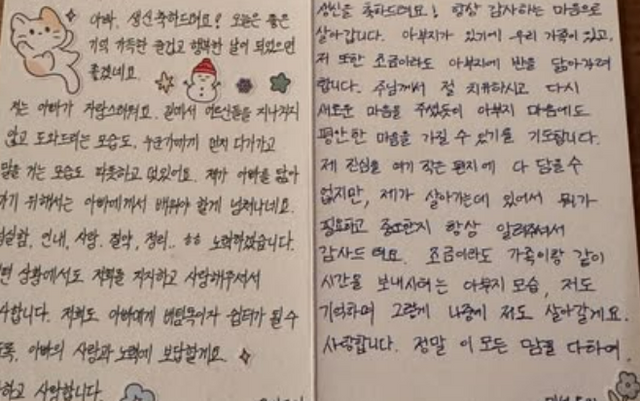 아빠. 생신축하드려요! 오늘은 좋은
기억 가득한 즐겁고 행복한 날이 되었으면
좋겠네요.
저는 아빠가 자랑스러워요. 길에서 어르신들을 지나치지
않고 도와드리는 모습도, 누군가에게 먼저 다가가고
말을 거는 모습도 따뜻하고 멋있어요. 제가 아빠를 닮아
가기 위해서는 아빠에게서 배워야 할게 넘쳐나네요.
인내, 사랑, 절약, 정리.. ㅎㅎ 노력하겠습니다.
상황에서도 저희를 지지하고 사랑해주셔서
사합니다. 저희도 아빠에게 버팀목이자 쉼터가 될 수
록, 아빠의 사랑과 노력에 보답할게요.
하고 사랑합니다.
생신을 축하드려요! 항상 감사하는 마음으로
살아갑니다. 아부지가 있기에 우리 가족이 있고,
저 또한 조금이라도 아부지에 반을 닮아가려
합니다. 주님께서 절 치유하시고 다시
새로운 마음을 주셨듯이 아부지 마음에도
평안한 마음을 가질 수 있기를 기도합니다.
제 진심을 여기 작은 편지에 다 담을 수
없지만, 제가 살아가는데 있어서 뭐가
필요하고 중요한지 항상 알려주셔서
감사드려요. 조금이라도 가족이랑 같이
시간을 보내시려는 아부지 모습, 저도
기억하며 그렇게 나중에 저도 살아갈게요.
사랑합니다. 정말 이 모든 맘을 다하여.